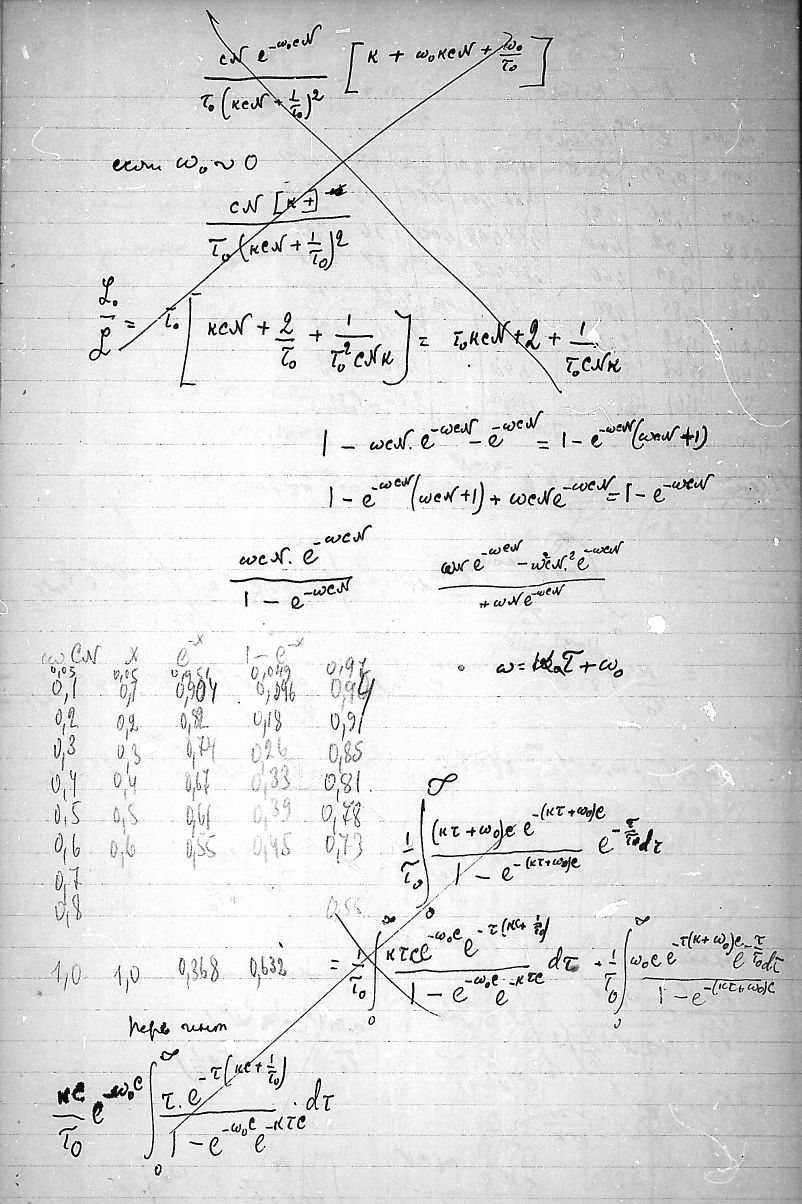 cN e^{-ω₀cN} / τ₀(κcN + 1/τ₀)² [κ + ω₀κcN + ω₀/τ₀]
если ω₀ ~ 0
cN [κ +] / τ₀(κcN + 1/τ₀)²
ℒ₀/ℒ = τ₀[κcN + 2/τ₀ + 1/τ₀²cNκ] = τ₀κcN + 2 + 1/τ₀cNκ
1 - ωcN. e^{-ωcN} - e^{-ωcN} = 1 - e^{-ωcN}(ωcN + 1)
1 - e^{-ωcN}(ωcN + 1) + ωcNe^{-ωcN} = 1 - e^{-ωcN}
ωcN. e^{-ωcN} / 1 - e^{-ωcN}
ωN e^{-ωcN} - ω²cN.² e^{-ωcN} / + ωNe^{-ωcN}
ωcN x e^{-x} 1 - e^{-x}
0,05 0,05 0,951 0,049 0,97
ω = τ + ω₀
0,1 0,1 0,904 0,096 0,94
0,2 0,2 0,82 0,18 0,91
0,3 0,3 0,74 0,26 0,85
0,4 0,4 0,67 0,33 0,81
0,5 0,5 0,61 0,39 0,78
0,6 0,6 0,55 0,45 0,73
0,7
0,8 0,58
1/τ₀ ∫₀^∞ (κτ + ω₀)c e^{-(κτ + ω₀)c} / 1 - e^{-(κτ+ω₀)c} e^{-τ/τ₀} dτ
1,0 1,0 0,368 0,632
= 1/τ₀ ∫₀^∞ κτce^{-ω₀c} e^{-τ(κc + 1/τ₀)} / 1 - e^{-ω₀c} e^{-κτc} dτ + 1/τ₀ ∫₀^∞ ω₀c e^{-τ(κ + ω₀)c} e^{-τ/τ₀} dτ / 1 - e^{-(κτ+ω₀)c}
перв инт
κc/τ₀ e^{-ω₀c} ∫₀^∞ τ. e^{-τ(κc + 1/τ₀)} / 1 - e^{-ω₀c} e^{-κτc} dτ